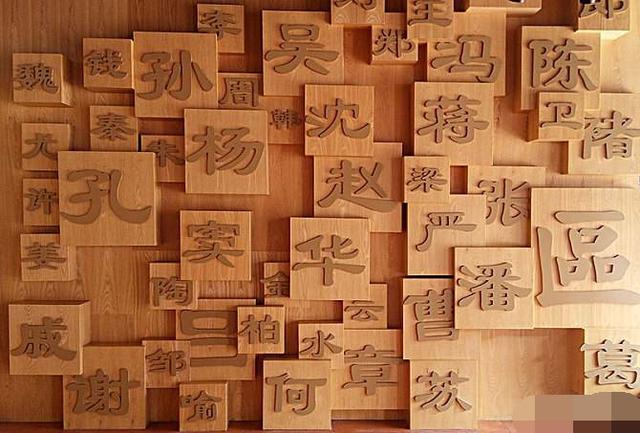 李
吴
王
郑
冯
陈
魏
钱
孙
周
韩
沈
蒋
卫
褚
尤
秦
朱
杨
赵
梁
张
许
孔
窦
华
严
區
姜
陶
金
云
曹
潘
戚
柏
水
邹
章
葛
谢
喻
何
苏